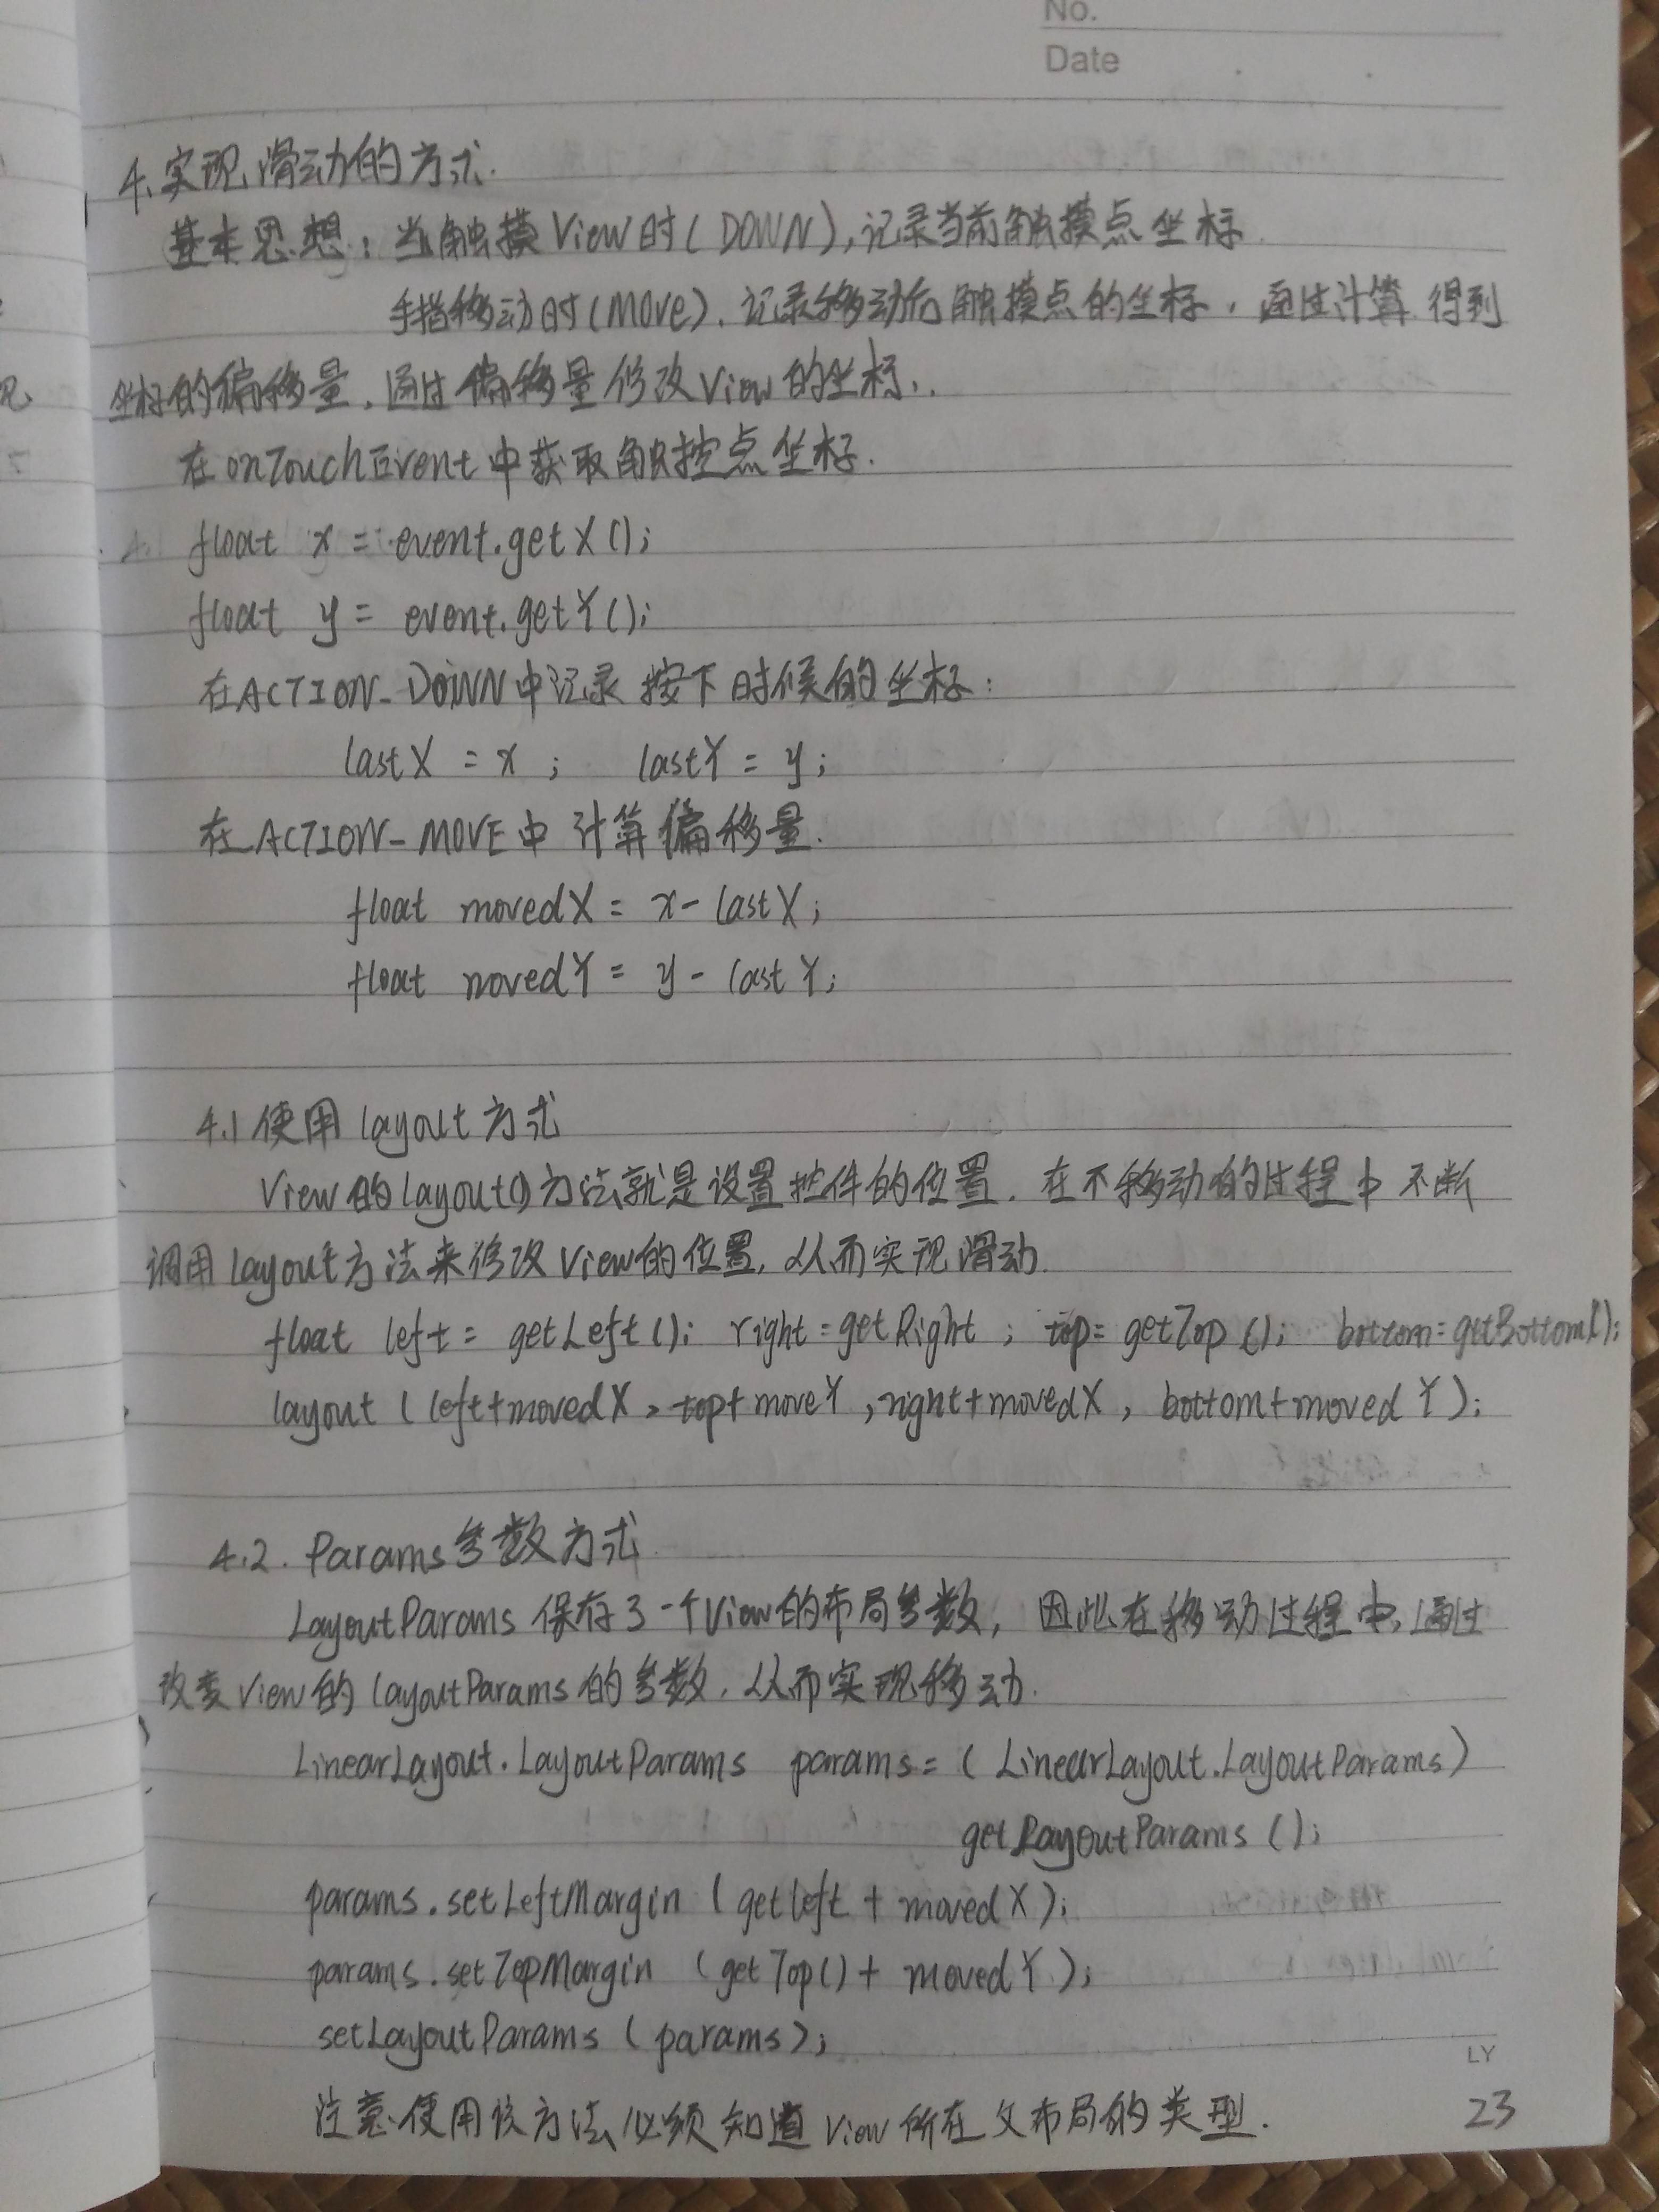 No.
Date
4、实现滑动的方式.
基本思想：当触摸View时(DOWN),记录当前触摸点坐标.
手指移动时(MOVE).记录移动后触摸点的坐标，通过计算得到
坐标的偏移量，通过偏移量修改View的坐标.
在onTouchEvent中获取触控点坐标.
float x = event.getX();
float y = event.getY();
在ACTION_DOWN中记录按下时候的坐标：
lastX = x ; lastY = y;
在ACTION_MOVE中计算偏移量.
float movedX = x - lastX;
float movedY = y - lastY;
4.1 使用layout方式
View的layout()方法就是设置控件的位置.在不移动的过程中不断
调用layout方法来修改View的位置,从而实现滑动.
float left = getLeft(); right = getRight ; top = getTop(); bottom = getBottom();
layout (left+movedX, top+moveY, right+movedX, bottom+movedY);
4.2. Params参数方式.
LayoutParams保存了一个View的布局参数，因此在移动过程中,通过
改变View的layoutParams的参数,从而实现移动.
LinearLayout.LayoutParams params = (LinearLayout.LayoutParams)
getLayoutParams ();
params.setLeftMargin (getleft + movedX);
params.setTopMargin (getTop() + movedY);
setLayoutParams (params);
注意.使用该方法必须知道View所在父布局的类型.
LY
23